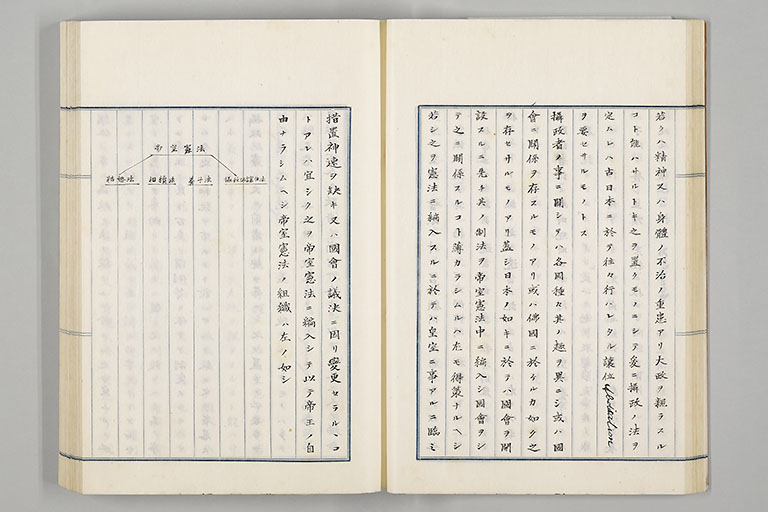 若クハ精神又ハ身體ノ不治ノ重患アリ大政ヲ親ラスル
コト能ハサルトキ之ヲ置クモノニシテ爰ニ攝政ノ法ヲ
定ムレハ古日本ニ於テ往々行ハレタル讓位
ヲ要セサルモノトス
攝政者ノ事ニ關シテハ各國種々其ノ趣ヲ異ニシ或ハ國
會ニ關係ヲ存スルモノアリ或ハ佛國ニ於ケルカ如ク之
ヲ存セサルモノアリ蓋シ日本ノ如キニ於テハ國會ヲ開
設スルニ先キ其ノ制法ヲ帝室憲法中ニ編入シ國會ヲシ
テ之ニ關係スルコト薄カラシムルハ左モ得策ナルヘシ
若シ之ヲ憲法ニ編入スルニ於テハ皇室ニ事アルニ臨ミ
措置神速ヲ缺キ又ハ國會ノ議決ニ因リ變更セラルヽコ
トアレハ宜シク之ヲ帝室憲法ニ編入シテ以テ帝王ノ自
由ナラシムヘシ帝室憲法ノ組織ハ左ノ如シ
帝室憲法
相續法